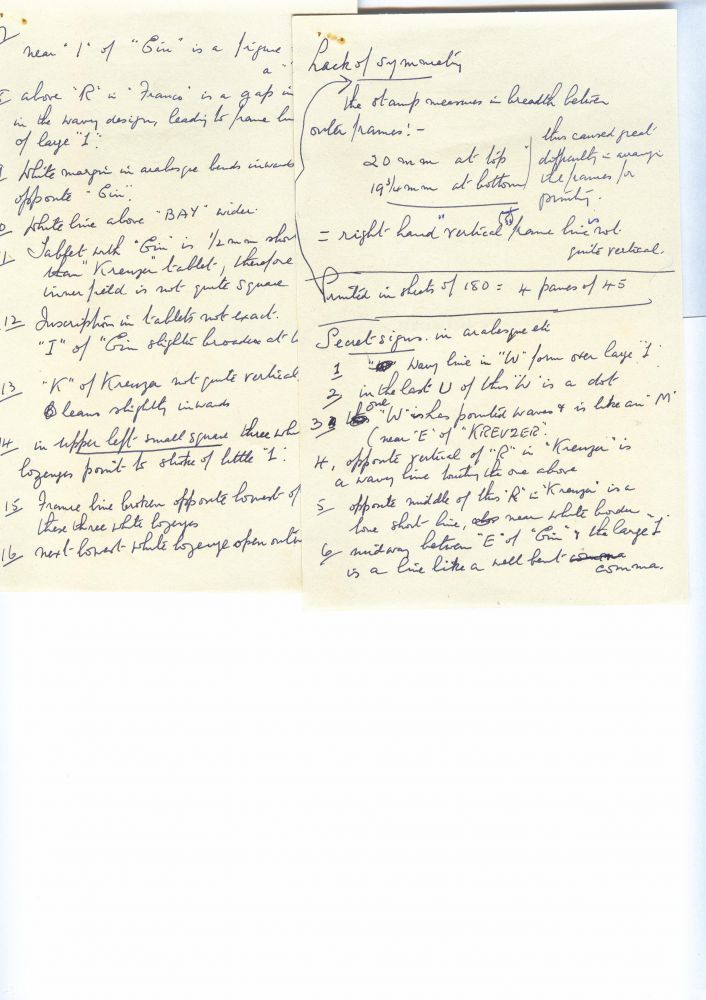 near "I" of "Ein" is a figure
a "
above "R" in "Franco" is a gap in
in the wavy design, leading to frame
of large "1".
White margin in arabesque bends inwards
opposite "Ein".
White line above "BAY" wider.
Tablet with "Ein" is 1/2 mm
than "Kreuzer" tablet, therefore
inner field is not quite square
12 Inscription in tablets not exact.
"I" of "Ein slightly broader at
13 "K" of Kreuzer not quite vertical
leans slightly inwards
14 in upper left small square three
lozenges point to stroke of little "1".
15 Frame line broken opposite lowest of
these three white lozenges
16 next-lowest white lozenge open
Lack of symmetry
the stamp measures in breadth between
outer frames:-
20 mm at top
19 3/4 mm at bottom
this caused great
difficulty in
the frames for
printing.
= right hand "vertical" frame line is not
quite vertical.
Printed in sheets of 180 = 4 panes of 45
Secret signs in arabesque etc
1 wavy line in "W" form over large "1"
2 in the last U of this "W" is a dot
3 one "W" has pointed waves & is like an "M"
(near "E" of "KREUZER".
4, opposite vertical of "R" in "Kreuzer" is
a wavy line touching the one above
5 opposite middle of this "R" in "Kreuzer" is a
lone short line, near white border
6 midway between "E" of "Ein" & the large "1"
is a line like a well bent comma
comma.